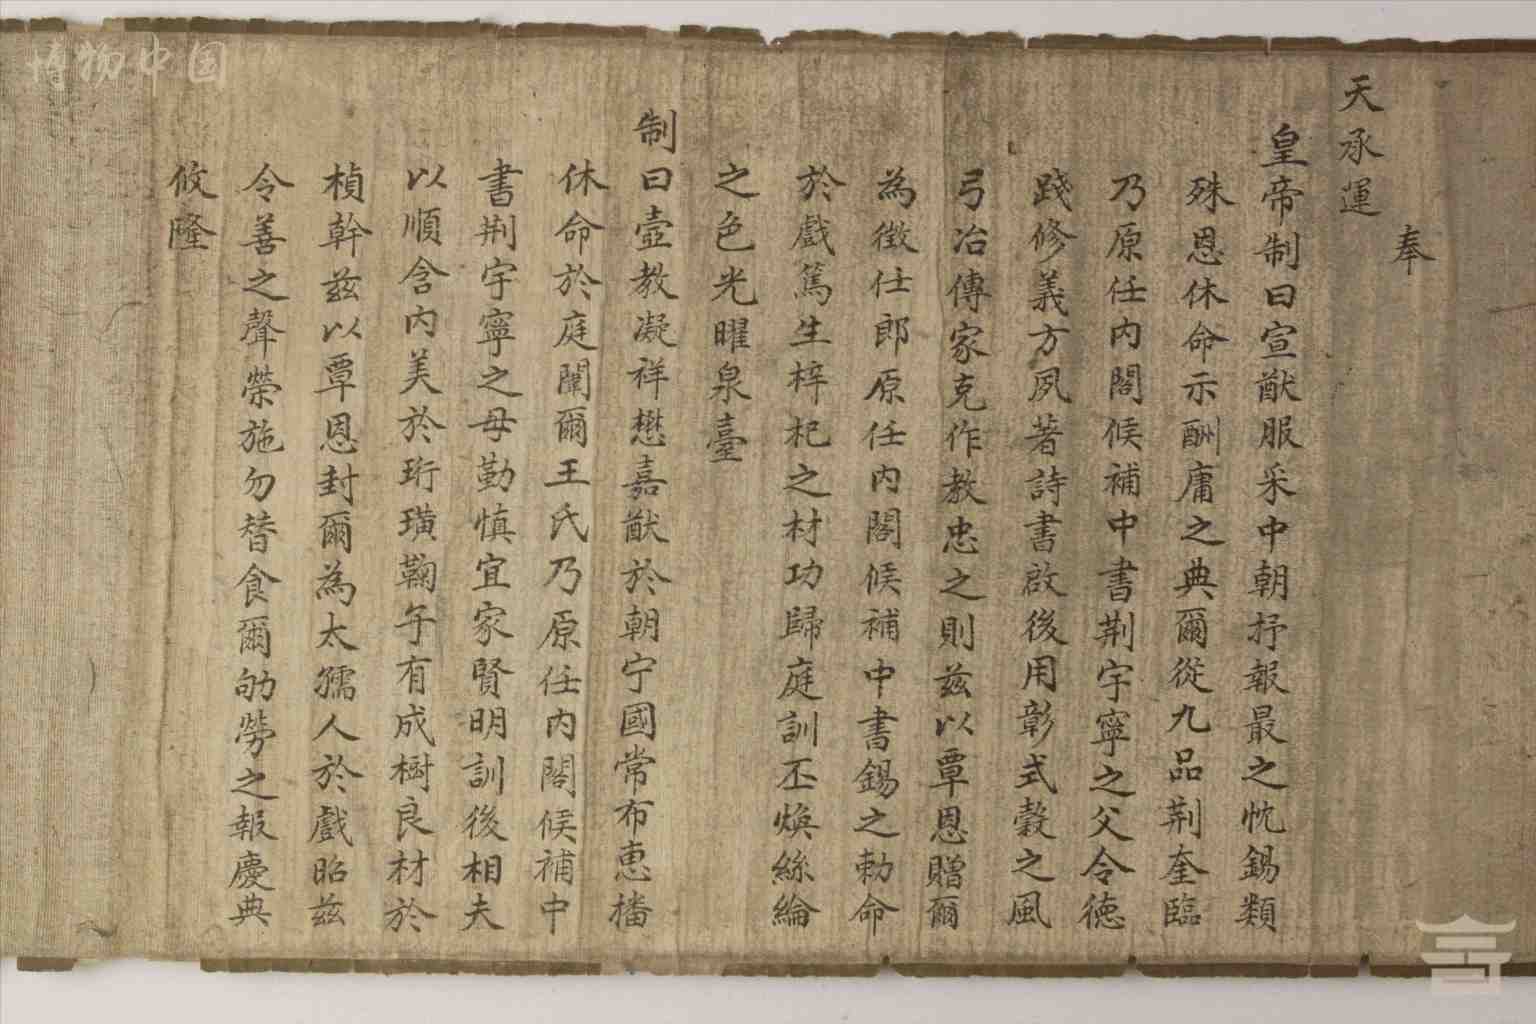 奉
天承運
皇帝制曰宣猷服采中朝抒報最之忱錫類
殊恩休命示酬庸之典爾從九品荆奎臨
乃原任内閣候補中書荆宇寧之父令德
踐修義方夙著詩書啟後用彰式穀之風
弓冶傳家克作教忠之則兹以覃恩贈爾
為徵仕郎原任内閣候補中書錫之勅命
於戲篤生梓杞之材功歸庭訓丕焕絲綸
之色光曜泉臺
制曰壼教凝祥懋嘉猷於朝宁國常布惠播
休命於庭闈爾王氏乃原任内閣候補中
書荆宇寧之母勤慎宜家賢明訓後相夫
以順含内美於珩璜鞠子有成樹良材於
楨幹兹以覃恩封爾為太孺人於戲昭兹
令善之聲榮施勿替食爾劬勞之報慶典
攸隆
博物中国